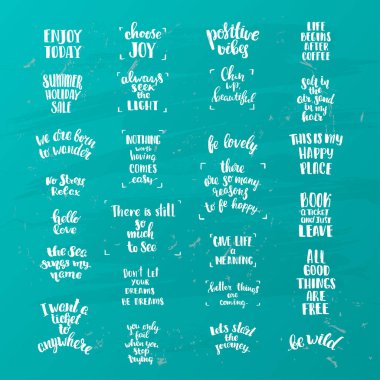 ENJOY
TODAY
SUMMER
HOLIDAY
SALE
we are born
to wander
No Stress
Relax
hello
love
the sea
sings my
name
I want a
ticket to
anywhere
choose
JOY
always
seek the
LIGHT
NOTHING
worth
having
COMES
easy
There is still
so
much
to See
DON'T LET
YOUR
DREAMS
BE DREAMS
you only
fail
when you
stop
trying
positive
vibes
Chin
up,
beautiful
be lovely
there
are so many
reasons
to be happy
GIVE LIFE
a
MEANING
better things
are
coming
Let's start
the
journey
LIFE
BEGINS
AFTER
COFFEE
salt in
the
air, sand
in my
hair
THIS IS MY
HAPPY
PLACE
BOOK
A TICKET
AND JUST
LEAVE
ALL
GOOD
THINGS
ARE
FREE
be wild